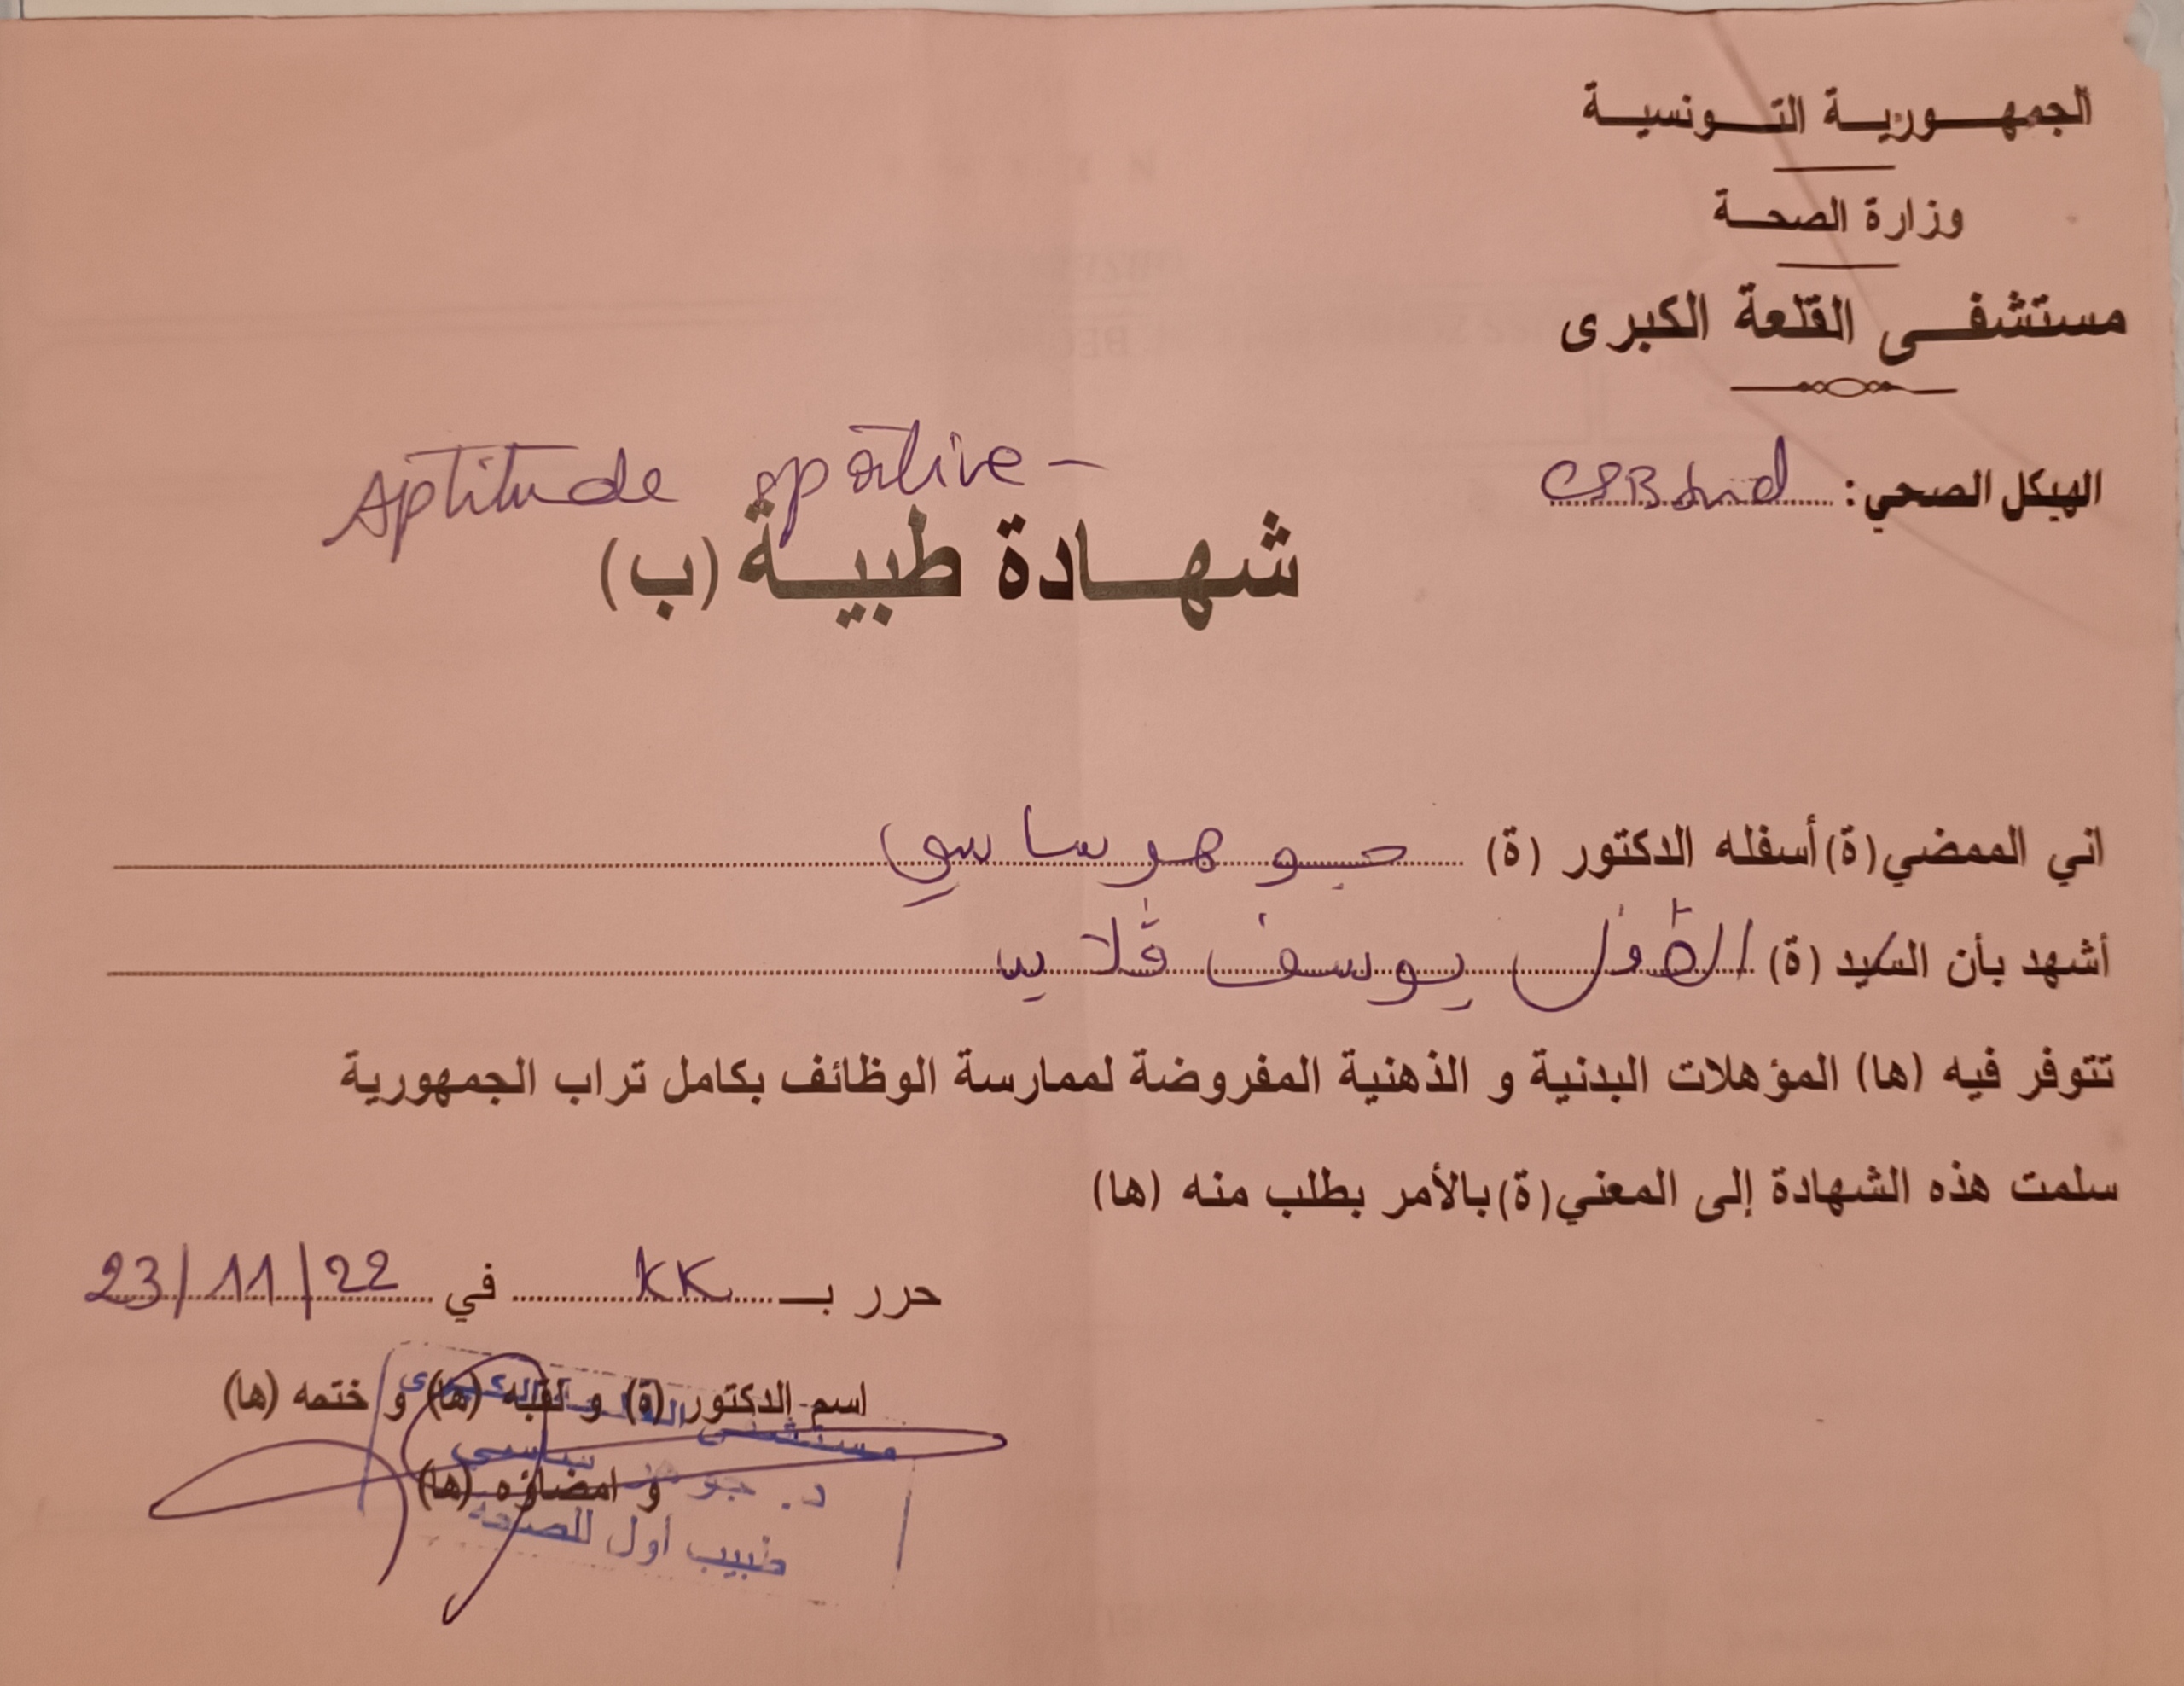 الجمهورية التونسية
وزارة الصحة
مستشفى القلعة الكبرى
الهيكل الصحي: CSB
Aptitude sportive -
شهادة طبية (ب)
اني الممضي (ة) أسفله الدكتور (ة) جوهر ساسي
أشهد بأن السيد (ة) الطفل يوسف
تتوفر فيه (ها) المؤهلات البدنية و الذهنية المفروضة لممارسة الوظائف بكامل تراب الجمهورية
سلمت هذه الشهادة إلى المعني (ة) بالأمر بطلب منه (ها)
حرر بـ KK في 23/11/22
اسم الدكتور (ة) و لقبه (ها) و ختمه (ها)
و امضاؤه (ها)
مستشفى القلعة الكبرى
د. جوهر ساسي
طبيب أول للصحة